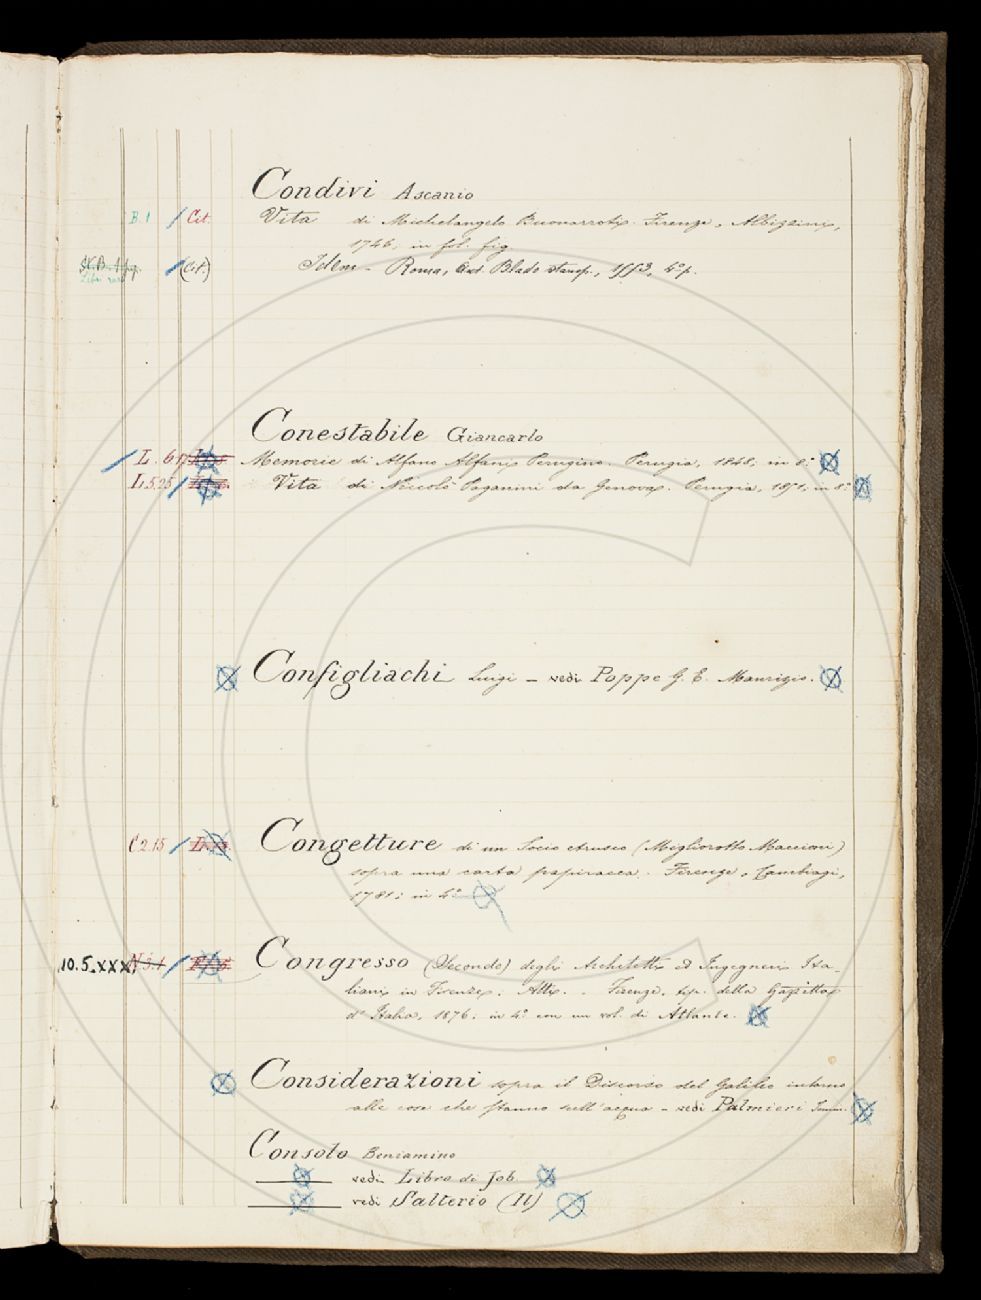 Condivi Ascanio
B. 1 / Cit. Vita di Michelangelo Buonarroti. Firenze, Albizzini,
1746; in fol. fig.
(Cit.) Idem - Roma, Ant. Blado stamp., 1553, 4° p.
Conestabile Giancarlo
L. 6 Memorie di Alfano Alfani Perugino. Perugia, 1848; in 8.°
L. 5.25 Vita di Niccolò Paganini da Genova. Perugia, 1851; in 8.°
Configliachi Luigi - vedi Poppe G. E. Maurizio.
C 2.15 Congetture di un Socio etrusco (Migliorotto Maccioni)
sopra una carta papiracea. Firenze, Cambiagi,
1781; in 4.°
10.5.XXX Congresso (Secondo) degli Architetti ed Ingegneri Ita-
liani in Firenze. Atti. - Firenze, tip. della Gazzetta
d'Italia, 1876; in 4.° con un vol. di Atlante.
Considerazioni sopra il Discorso del Galileo intorno
alle cose che stanno sull'acqua - vedi Palmieri
Consolo Beniamino
vedi Libro di Job.
vedi Salterio (Il)